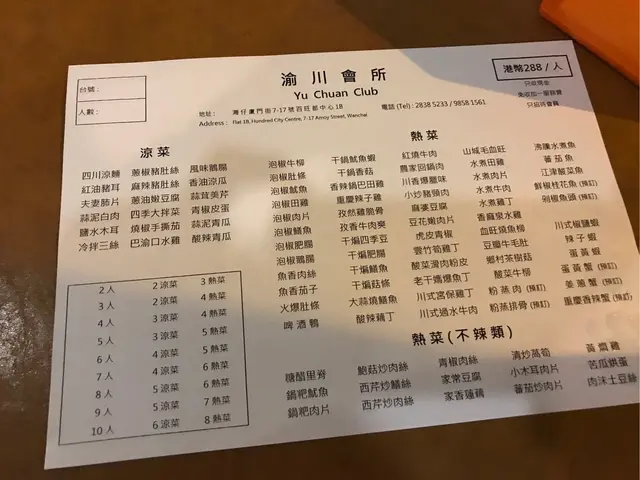 台號：
人數：
渝川會所
Yu Chuan Club
港幣288 / 人
只收現金
免收加一服務費
只招待會員
地址： 灣仔廈門街7-17號百旺都中心1B 電話 (Tel) : 2838 5233 / 9858 1561
Address : Flat 1B, Hundred City Centre, 7-17 Amoy Street, Wanchai
涼菜
四川涼麵 蔥椒豬肚絲 風味鵝腸
紅油豬耳 麻辣豬肚絲 香油涼瓜
夫妻肺片 蔥油嫩豆腐 蒜茸美芹
蒜泥白肉 四季大拌菜 青椒皮蛋
鹽水木耳 燒椒手撕茄 蒜泥青瓜
冷拌三絲 巴渝口水雞 酸辣青瓜
2人 2涼菜 3熱菜
3人 2涼菜 4熱菜
4人 3涼菜 4熱菜
5人 3涼菜 5熱菜
6人 4涼菜 5熱菜
7人 4涼菜 6熱菜
8人 5涼菜 6熱菜
9人 5涼菜 7熱菜
10人 6涼菜 8熱菜
熱菜
泡椒牛柳 干鍋魷魚蝦 紅燒牛肉 山城毛血旺 沸騰水煮魚
泡椒肚條 干鍋香菇 農家回鍋肉 水煮田雞 蕃茄魚
泡椒魷魚 香辣鍋巴田雞 川香爆臘味 水煮肉片 江津酸菜魚
泡椒田雞 重慶辣子雞 小炒豬頸肉 水煮牛肉 鮮椒桂花魚 (預訂)
泡椒雞肉 孜然雞脆骨 麻婆豆腐 水煮雞丁 剁椒魚頭 (預訂)
泡椒鱔魚 孜香牛肉爽 豆花嫩肉片 香麻泉水雞
泡椒肥腸 干煸四季豆 虎皮青椒 血旺燒鱔魚 川式椒鹽蝦
泡椒鵝腸 干煸肥腸 雲竹筍雞丁 豆瓣牛毛肚 辣子蝦
魚香肉絲 干煸鱔魚 酸菜滑肉粉皮 鄉村茶樹菇 蛋黃蝦
魚香茄子 干煸菇條 老干媽爆魚丁 酸菜牛柳 蛋黃蟹 (預訂)
火爆肚條 大蒜燒鱔魚 川式宮保雞丁 粉蒸肉 (預訂) 姜蔥蟹 (預訂)
啤酒鴨 酸辣藕丁 川式過水牛肉 粉蒸排骨 (預訂) 重慶香辣蟹 (預訂)
熱菜(不辣類)
糖醋里脊 鮑菇炒肉絲 青椒肉絲 清炒萵筍 黃燜雞
鍋粑魷魚 西芹炒鱔絲 家常豆腐 小木耳肉片 苦瓜烘蛋
鍋粑肉片 西芹炒肉絲 家香蓮藕 蕃茄炒肉片 肉沫土豆絲